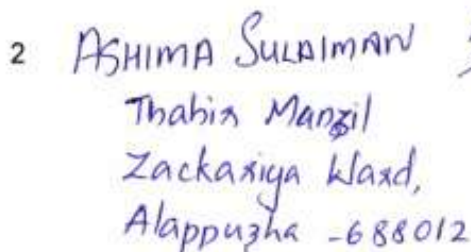 2 ASHIMA SULAIMAN
Thahir Manzil
Zackariya Ward,
Alappuzha - 688012